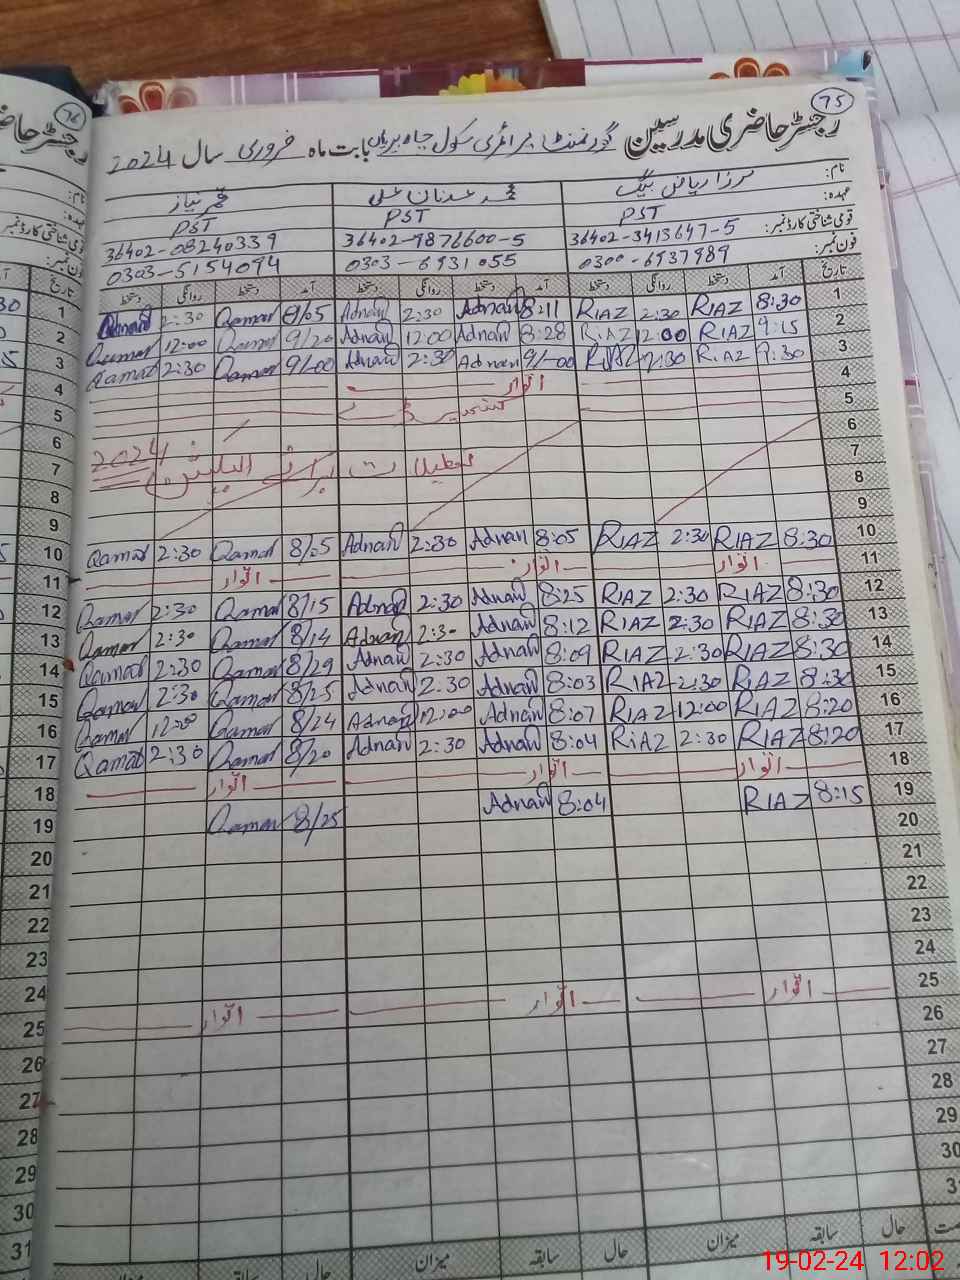 75
رجسٹر حاضری مدرسین گورنمنٹ پرائمری سکول چاہ بریاں بابت ماہ فروری سال 2024
نام: مرزا ریاض بیگ محمد عدنان علی قمر نیاز
عہدہ: PST PST PST
قومی شناختی کارڈ نمبر: 36402-3413647-5 36402-9876600-5 36402-08240339
فون نمبر: 0300-6937989 0303-6931055 0303-5154094
تاریخ آمد دستخط روانگی دستخط آمد دستخط روانگی دستخط آمد دستخط روانگی دستخط
1 8:30 RIAZ 2:30 RIAZ 8:11 Adnan 2:30 Adnan 8/05 Qamar 2:30 1
2 9:15 RIAZ 12:00 RIAZ 8:28 Adnan 12:00 Adnan 9/20 Qamar 12:00 Qamar 2
3 9:30 RIAZ 2:30 RIAZ 9/-00 Adnan 2:30 Adnan 9/-00 Qamar 2:30 Qamar 3
4 اتوار 4
5 کشمیر ڈے 5
6 6
7 تعطیلات برائے الیکشن 2024 7
8 8
9 9
10 8:30 RIAZ 2:30 RIAZ 8:05 Adnan 2:30 Adnan 8/05 Qamar 2:30 Qamar 10
11 اتوار اتوار اتوار 11
12 8:30 RIAZ 2:30 RIAZ 8:25 Adnan 2:30 Adnan 8/15 Qamar 2:30 Qamar 12
13 8:30 RIAZ 2:30 RIAZ 8:12 Adnan 2:30 Adnan 8/14 Qamar 2:30 Qamar 13
14 8:30 RIAZ 2:30 RIAZ 8:09 Adnan 2:30 Adnan 8/29 Qamar 2:30 Qamar 14
15 8:30 RIAZ 2:30 RIAZ 8:03 Adnan 2:30 Adnan 8/25 Qamar 2:30 Qamar 15
16 8:20 RIAZ 12:00 RIAZ 8:07 Adnan 12:00 Adnan 8/24 Qamar 12:00 Qamar 16
17 8:20 RIAZ 2:30 RIAZ 8:04 Adnan 2:30 Adnan 8/20 Qamar 2:30 Qamar 17
18 اتوار اتوار اتوار 18
19 8:15 RIAZ 8:04 Adnan 8/25 Qamar 19
20 20
21 21
22 22
23 23
24 24
25 اتوار اتوار اتوار 25
26 26
27 27
28 28
29 29
30 30
31 31
حال سابقہ میزان حال سابقہ میزان حال سابقہ میزان
76
رجسٹر حاضری
نام:
عہدہ:
قومی شناختی کارڈ نمبر:
فون نمبر:
تاریخ
19-02-24 12:02